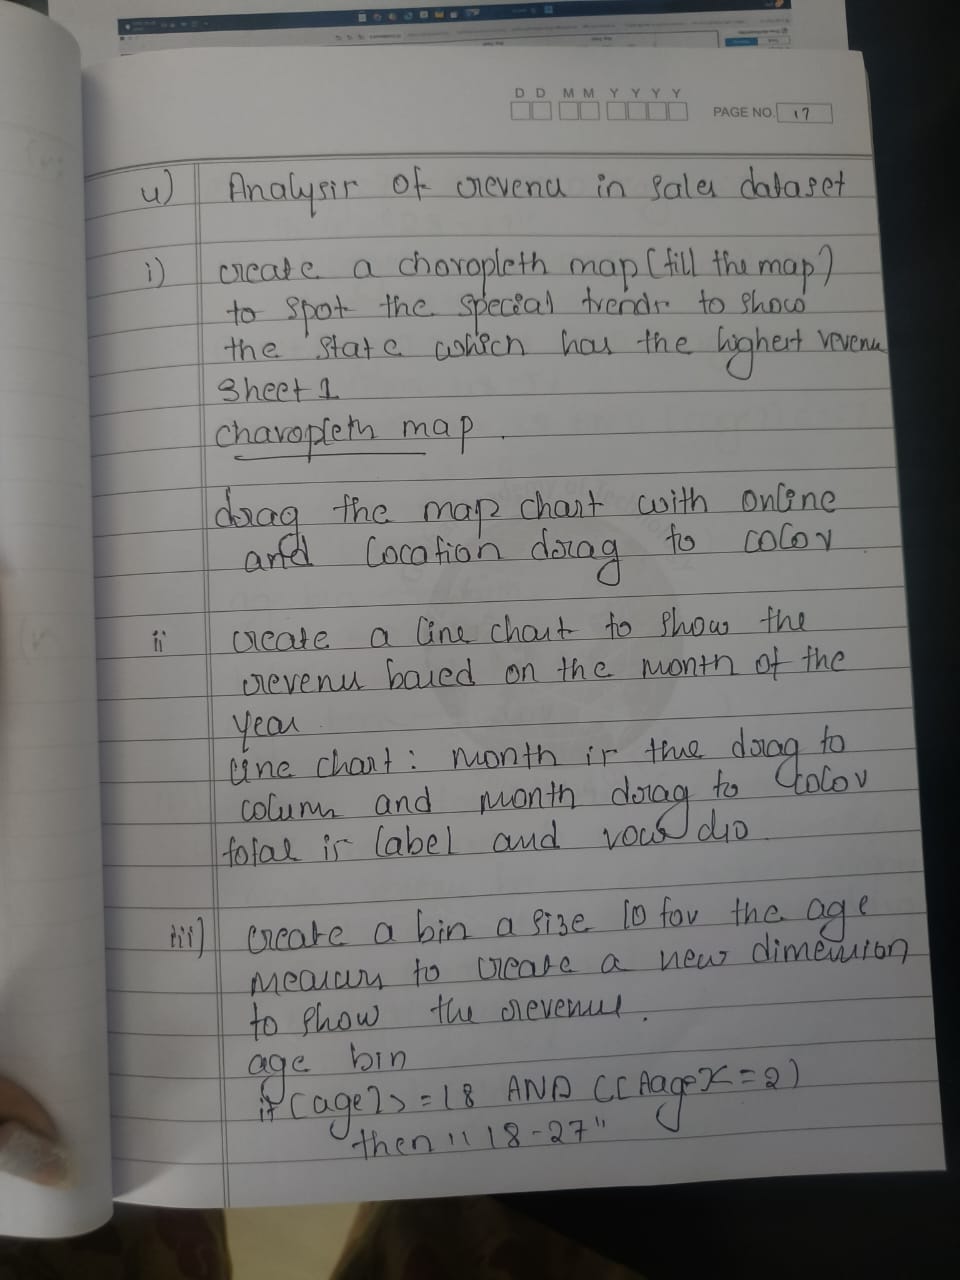 D D M M Y Y Y Y
PAGE NO. 17
4) Analysis of revenu in sales dataset
i) create a choropleth map (fill the map)
to spot the special trends to show
the state which has the highest revenu
Sheet 1
choropleth map.
drag the map chart with online
and location drag to color
ii create a line chart to show the
revenu based on the month of the
year.
line chart: month is the drag to
column and month drag to color
total is label and rows
iii) create a bin a size 10 for the age
measure to create a new dimension
to show the revenue.
age bin
if [age] >= 18 AND ([Aage]<=2)
then "18-27"